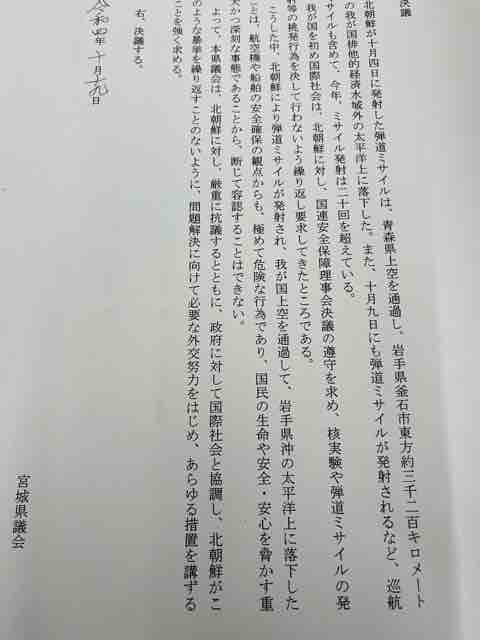 決議
北朝鮮が十月四日に発射した弾道ミサイルは、青森県上空を通過し、岩手県釜石市東方約三千二百キロメート
の我が国排他的経済水域外の太平洋上に落下した。また、十月九日にも弾道ミサイルが発射されるなど、巡航
サイルも含めて、今年、ミサイル発射は二十回を超えている。
我が国を初め国際社会は、北朝鮮に対し、国連安全保障理事会決議の遵守を求め、核実験や弾道ミサイルの発
等の挑発行為を決して行わないよう繰り返し要求してきたところである。
こうした中、北朝鮮により弾道ミサイルが発射され、我が国上空を通過して、岩手県沖の太平洋上に落下した
ことは、航空機や船舶の安全確保の観点からも、極めて危険な行為であり、国民の生命や安全・安心を脅かす重
大かつ深刻な事態であることから、断じて容認することはできない。
よって、本県議会は、北朝鮮に対し、厳重に抗議するとともに、政府に対して国際社会と協調し、北朝鮮がこ
のような暴挙を繰り返すことのないように、問題解決に向けて必要な外交努力をはじめ、あらゆる措置を講ずる
ことを強く求める。
右、決議する。
令和四年十月十九日
宮城県議会